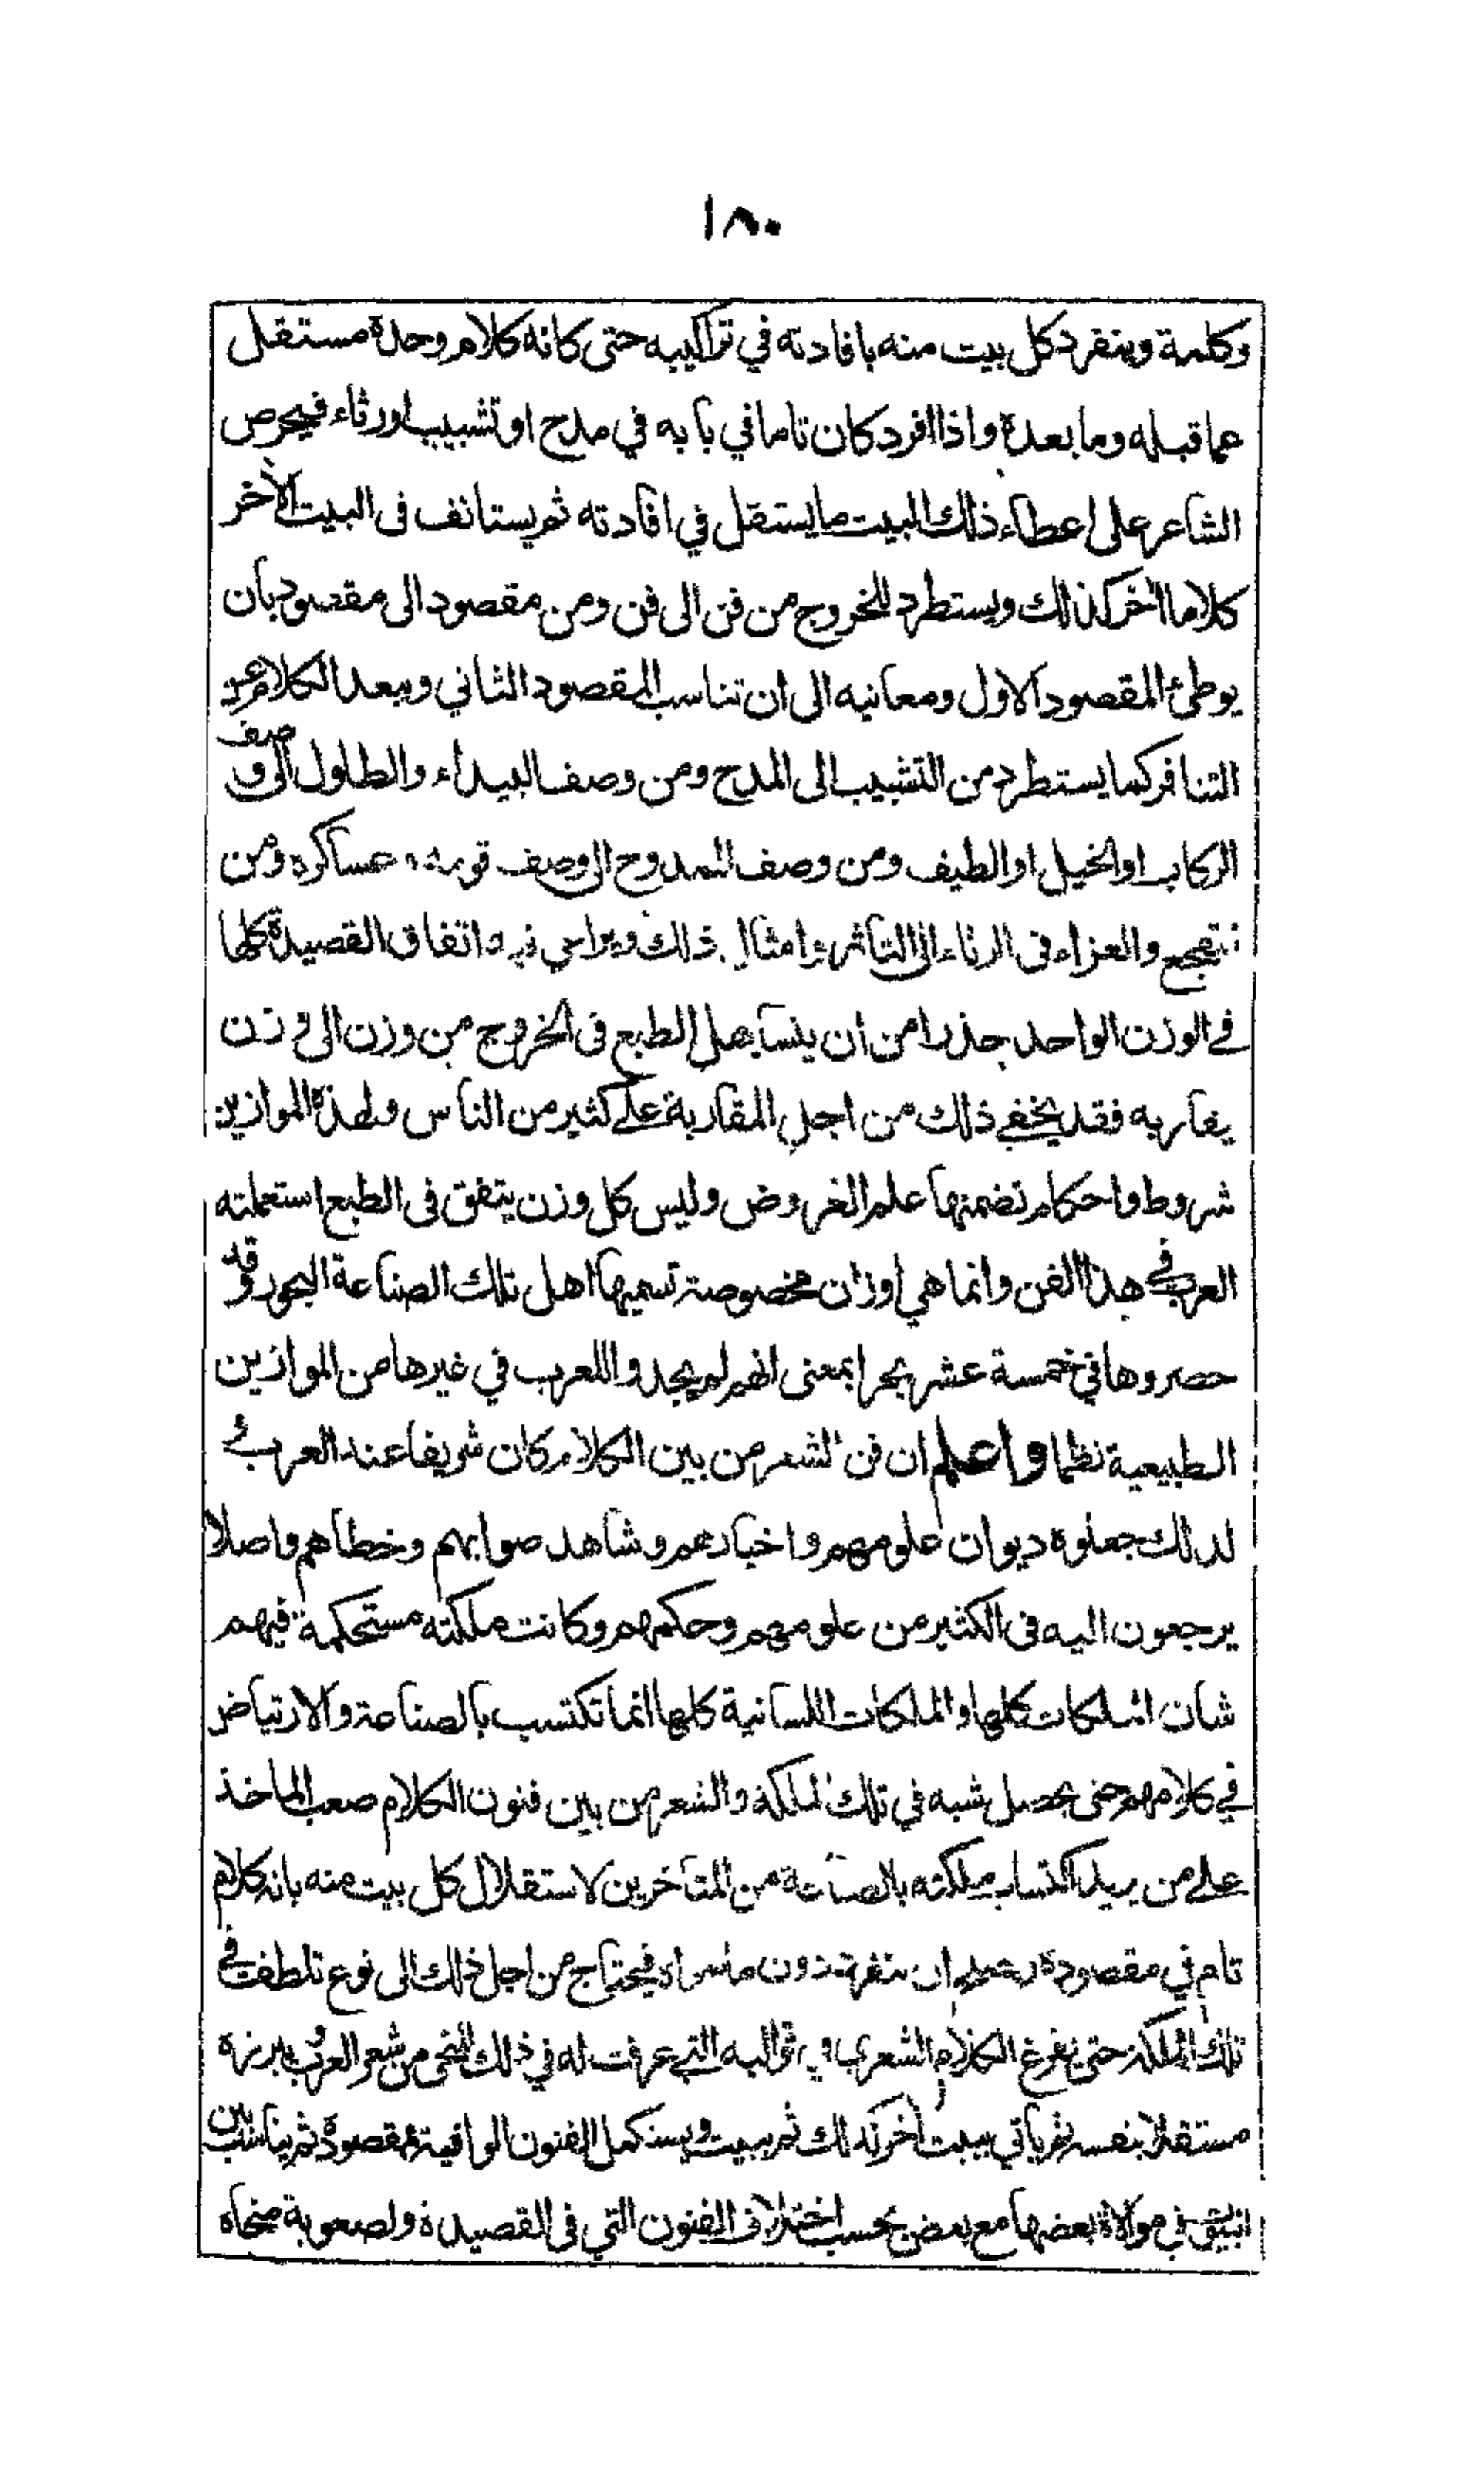 ١٨٠
وكلمة وينفرد كل بيت منه بافادته في تراكيبه حتى كانه كلام وحدة مستقل
عما قبله وما بعدة واذا افرد كان تاما في بابه في مدح او تشبيب اورثاء فيحرص
الشاعر على اعطاء ذلك البيت ما يستقل في افادته ثم يستانف فى البيت الاٰخر
كلاما اٰخر كذلك ويستطرد للخروج من فن الى فن ومن مقصود الى مقصود بان
يوطئ المقصود الاول ومعانيه الى ان تناسب المقصود الثاني ويبعد الكلام عن
التنافر كما يستطرد من التشبيب الى المدح ومن وصف البيداء والطلول الى وصف
الركاب او الخيل او الطيف ومن وصف الممدوح الى وصف قومه وعساكره ومن
التفجع والعزاء فى الرثاء الى التاثر وامثال ذلك ويراعي فيه اتفاق القصيدة كلها
في الوزن الواحد حذرا من ان يتساهل الطبع فى الخروج من وزن الى وزن
يقاربه فقد يخفى ذلك من اجل المقاربة على كثير من الناس ولهذة الموازين
شروط واحكام تضمنها علم العروض وليس كل وزن يتفق فى الطبع استعملته
العرب في هذا الفن وانما هي اوزان مخصوصة تسميها اهل تلك الصناعة البحور وقد
حصروها في خمسة عشر بحرا بمعنى انهم لم يجدوا للعرب في غيرها من الموازين
الطبيعية نظما واعلم ان فن الشعر من بين الكلام كان شريفا عند العرب
لذلك جعلوة ديوان علومهم واخبارهم وشاهد صوابهم وخطأهم واصلا
يرجعون اليه فى الكثير من علومهم وحكمهم وكانت ملكته مستحكمة فيهم
شان الملكات كلها والملكات اللسانية كلها انما تكتسب بالصناعة والارتياض
في كلامهم حتى يحصل شبه في تلك الملكة والشعر من بين فنون الكلام صعب الماخذ
على من يريد اكتساب ملكته بالصناعة من المتأخرين لاستقلال كل بيت منه بانه كلام
تام في مقصودة ويصلح ان ينفرد دون ما سواه فيحتاج من اجل ذلك الى نوع تلطف في
تلك الملكة حتى يفرغ الكلام الشعري في قوالبه التي عرفت له في ذلك المنحى من شعر العرب يبرزه
مستقلا بنفسه ثم ياتي ببيت اٰخر كذلك ثم ببيت ويستكمل الفنون الوافية بمقصودة ثم يناسب بين
البيوت في موالاة بعضها مع بعض بحسب اختلاف الفنون التي فى القصيدة ولصعوبة منحاه